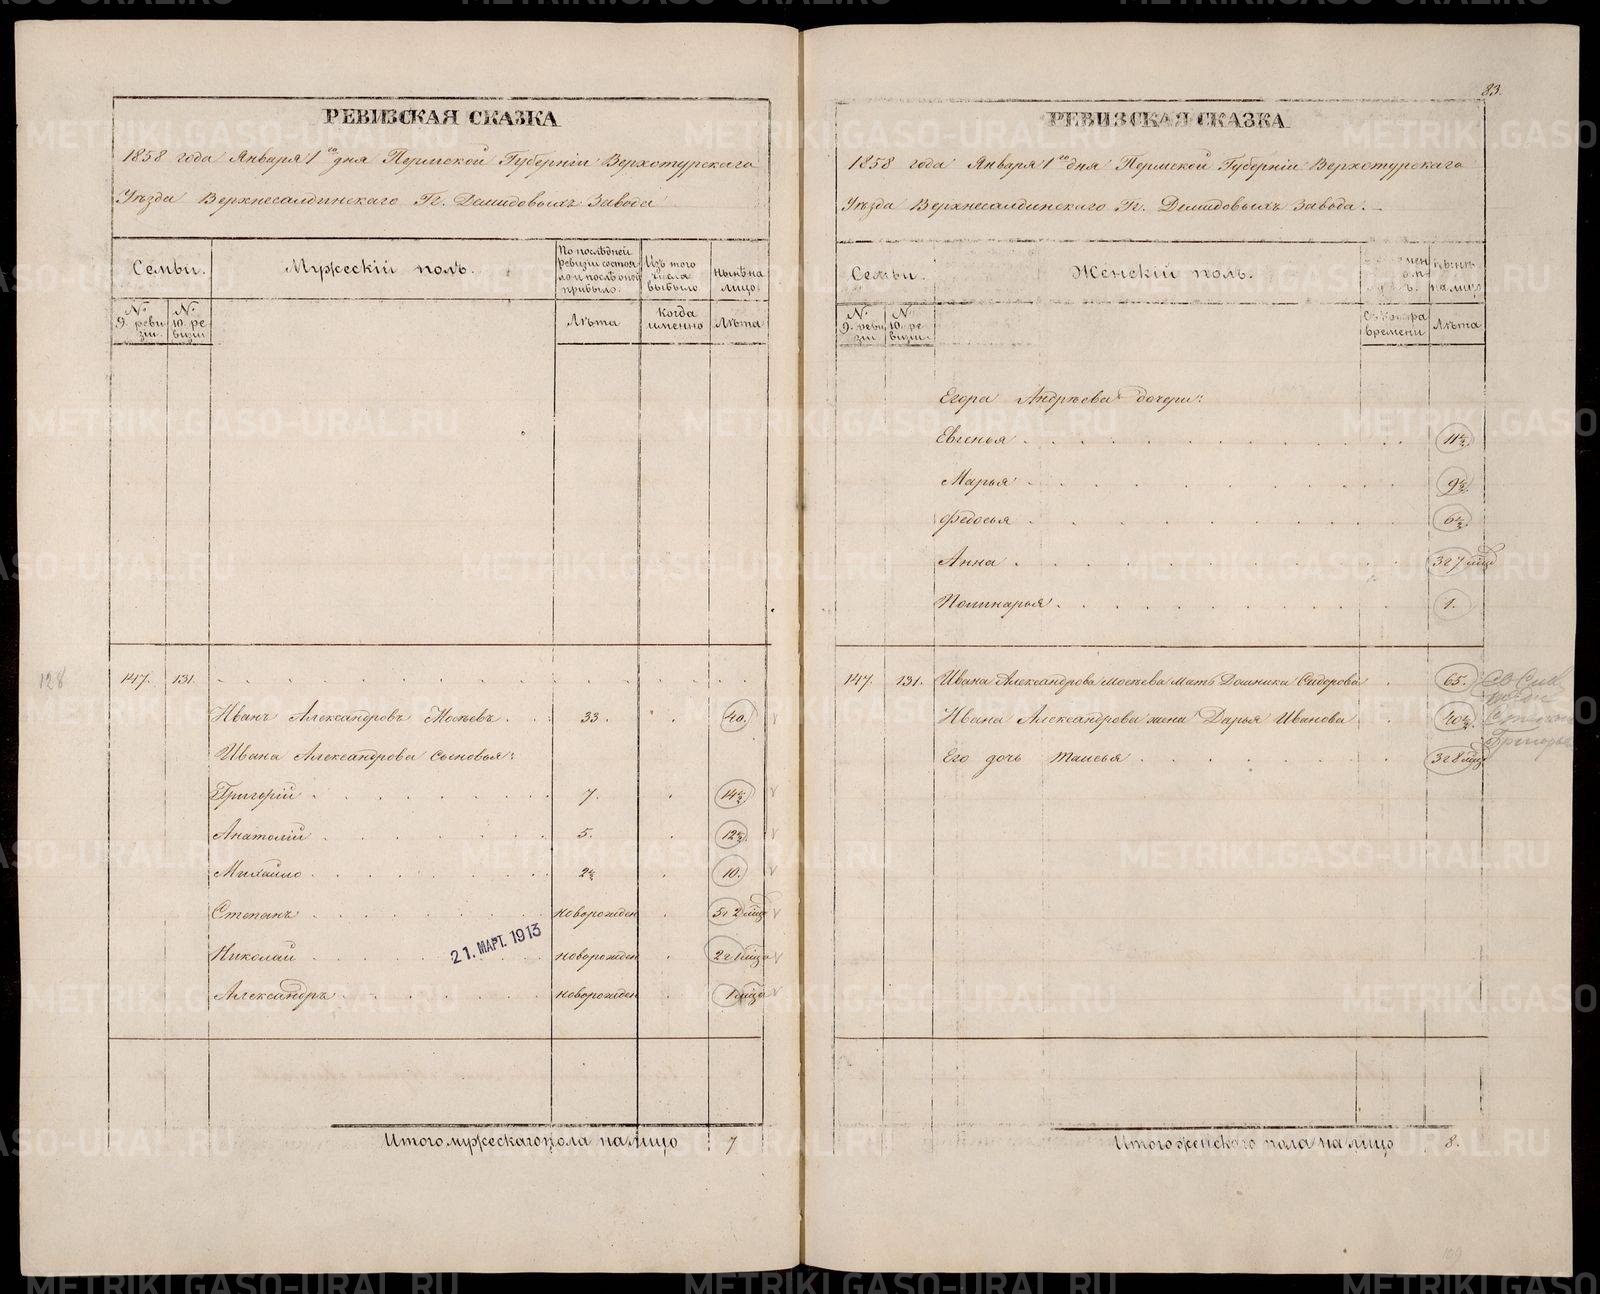 РЕВИЗСКАЯ СКАЗКА
1858 года Января 1го дня Пермской Губерніи Верхотурскаго
Уѣзда Верхнесалдинскаго Гг. Демидовыхъ Завода
Семьи.
Мужескій полъ.
По послѣдней ревизіи состояло и послѣ оной прибыло.
Изъ того числа выбыло
Нынѣ на лицо.
№ 9. ревизіи
№ 10. ревизіи
Лѣта
Когда именно
Лѣта
128
147. 131.
Иванъ Александровъ Мосѣевъ 33. 40.
Ивана Александрова сыновья:
Григорій 7. 14½
Анатолій 5. 12½
Михайло 2½ 10.
Степанъ новорожден 5г 2 мца
Николай новорожден 2г 1 мца
21. МАРТ. 1913
Александръ новорожден 1 мца
Итого мужескаго пола на лицо 7
83.
РЕВИЗСКАЯ СКАЗКА
1858 года Января 1го дня Пермской Губерніи Верхотурскаго
Уѣзда Верхнесалдинскаго Гг. Демидовыхъ Завода.
Семьи.
Женскій полъ.
Нынѣ на лицо
№ 9. ревизіи
№ 10. ревизіи.
Съ котора времени
Лѣта
Егора Андрѣева дочери:
Евгенья 11½
Марья 9½
Федосья 6½
Анна 3г 7 мцъ
Полинарья 1.
147. 131. Ивана Александрова Мосѣева мать Домника Сидорова 65.
Ивана Александрова жена Дарья Иванова 40½
Его дочь Таисья 3г 8 мцъ
Степан
Григорье
Итого женскаго пола на лицо 8.
109
METRIKI.GASO-URAL.RU